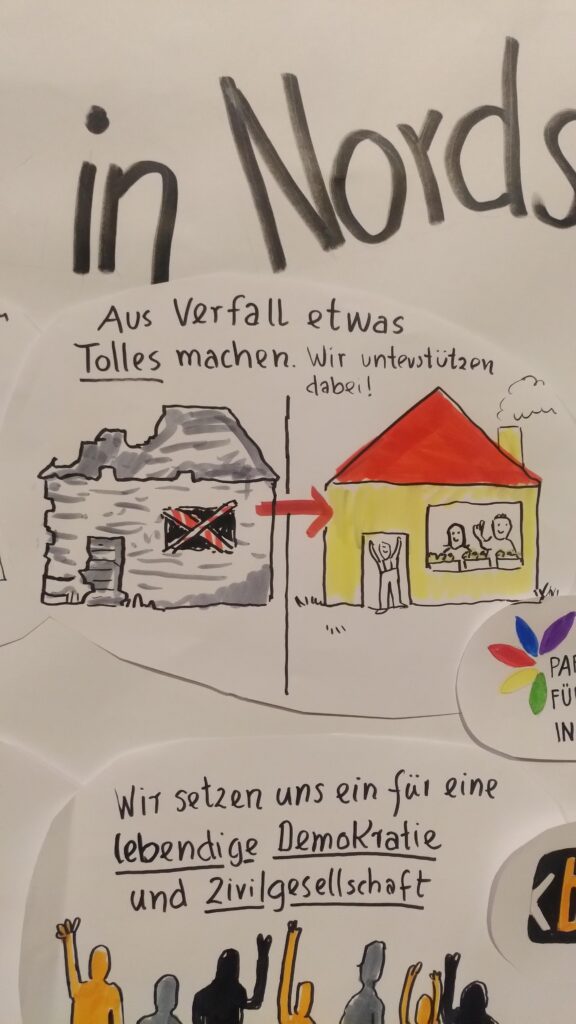 in Nords
Aus Verfall etwas
Tolles machen. Wir unterstützen
dabei!
FÜ
IN
Wir setzen uns ein für eine
lebendige Demokratie
und Zivilgesellschaft